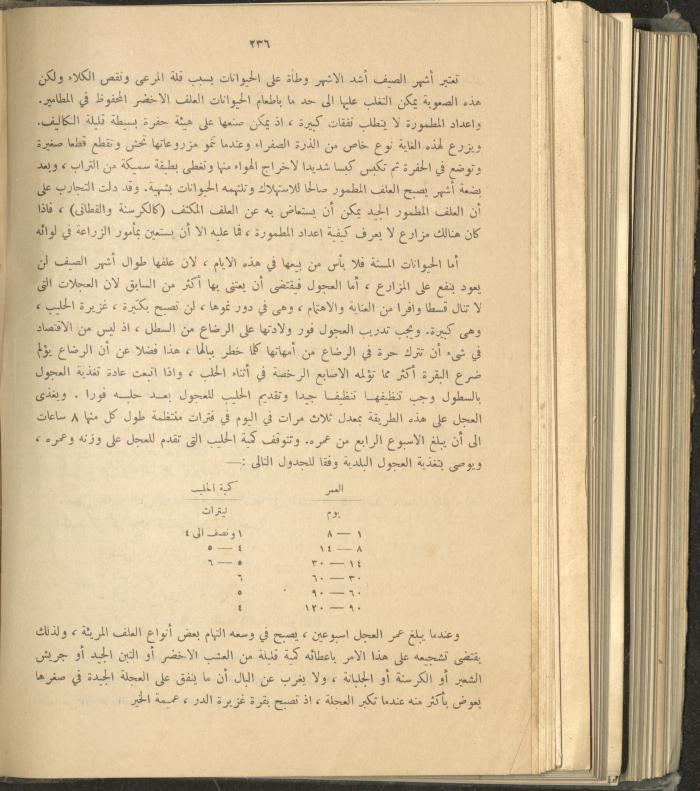 ٢٣٦
تعتبر أشهر الصيف أشد الاشهر وطأة على الحيوانات بسبب قلة المرعى ونقص الكلاء ولكن
هذه الصعوبة يمكن التغلب عليها الى حد ما باطعام الحيوانات العلف الاخضر المحفوظ في المطامير.
واعداد المطمورة لا يتطلب نفقات كبيرة ، اذ يمكن صنعها على هيئة حفرة بسيطة قليلة التكاليف.
ويزرع لهذه الغاية نوع خاص من الذرة الصفراء وعندما تنمو مزروعاتها تحش وتقطع قطعا صغيرة
وتوضع في الحفرة ثم تكبس كبسا شديدا لاخراج الهواء منها وتغطى بطبقة سميكة من التراب ، وبعد
بضعة أشهر يصبح العلف المطمور صالحا للاستهلاك وتلتهمه الحيوانات بشهية. وقد دلت التجارب على
أن العلف المطمور الجيد يمكن أن يستعاض به عن العلف المكثف (كالكرسنة والقطانى) ، فاذا
كان هنالك مزارع لا يعرف كيفية اعداد المطمورة ، فما عليه الا أن يستعين بمأمور الزراعة في لوائه
أما الحيوانات المسنة فلا بأس من بيعها في هذه الايام ، لان علفها طوال أشهر الصيف لن
يعود بنفع على المزارع ، أما العجول فيقتضى أن يعتنى بها أكثر من السابق لان العجلات التى
لا تنال قسطا وافرا من العناية والاهتمام ، وهى في دور نموها ، لن تصبح بكيرة ، غزيرة الحليب ،
وهى كبيرة. ويجب تدريب العجول فور ولادتها على الرضاع من السطل ، اذ ليس من الاقتصاد
في شيء أن تترك حرة في الرضاع من أمهاتها كلما خطر ببالها ، هذا فضلا عن أن الرضاع يؤلم
ضرع البقرة أكثر مما تؤلمه الاصابع الرخصة في أثناء الحلب ، واذا اتبعت عادة تغذية العجول
بالسطول وجب تنظيفها تنظيفا جيدا وتقديم الحليب للعجول بعد حلبه فورا . ويغذى
العجل على هذه الطريقة بمعدل ثلاث مرات في اليوم في فترات منتظمة طول كل منها ٨ ساعات
الى أن يبلغ الاسبوع الرابع من عمره. وتتوقف كمية الحليب التى تقدم للعجل على وزنه وعمره ،
ويوصى بتغذية العجول البلدية وفقا للجدول التالى :—
العمر كمية الحليب
يوم ليترات
١ — ٨ ١ ونصف الى ٤
٨ — ١٤ ٤ — ٥
١٤ — ٣٠ ٥ — ٦
٣٠ — ٦٠ ٦
٦٠ — ٩٠ ٥
٩٠ — ١٢٠ ٤
وعندما يبلغ عمر العجل اسبوعين ، يصبح في وسعه التهام بعض أنواع العلف المريئة ، ولذلك
يقتضى تشجيعه على هذا الامر باعطائه كمية قليلة من العشب الاخضر أو التبن الجيد أو جريش
الشعير أو الكرسنة أو الجلبانة ، ولا يغرب عن البال أن ما ينفق على العجلة الجيدة في صغرها
يعوض بأكثر منه عندما تكبر العجلة ، إذ تصبح بقرة غزيرة الدر ، عميمة الخير